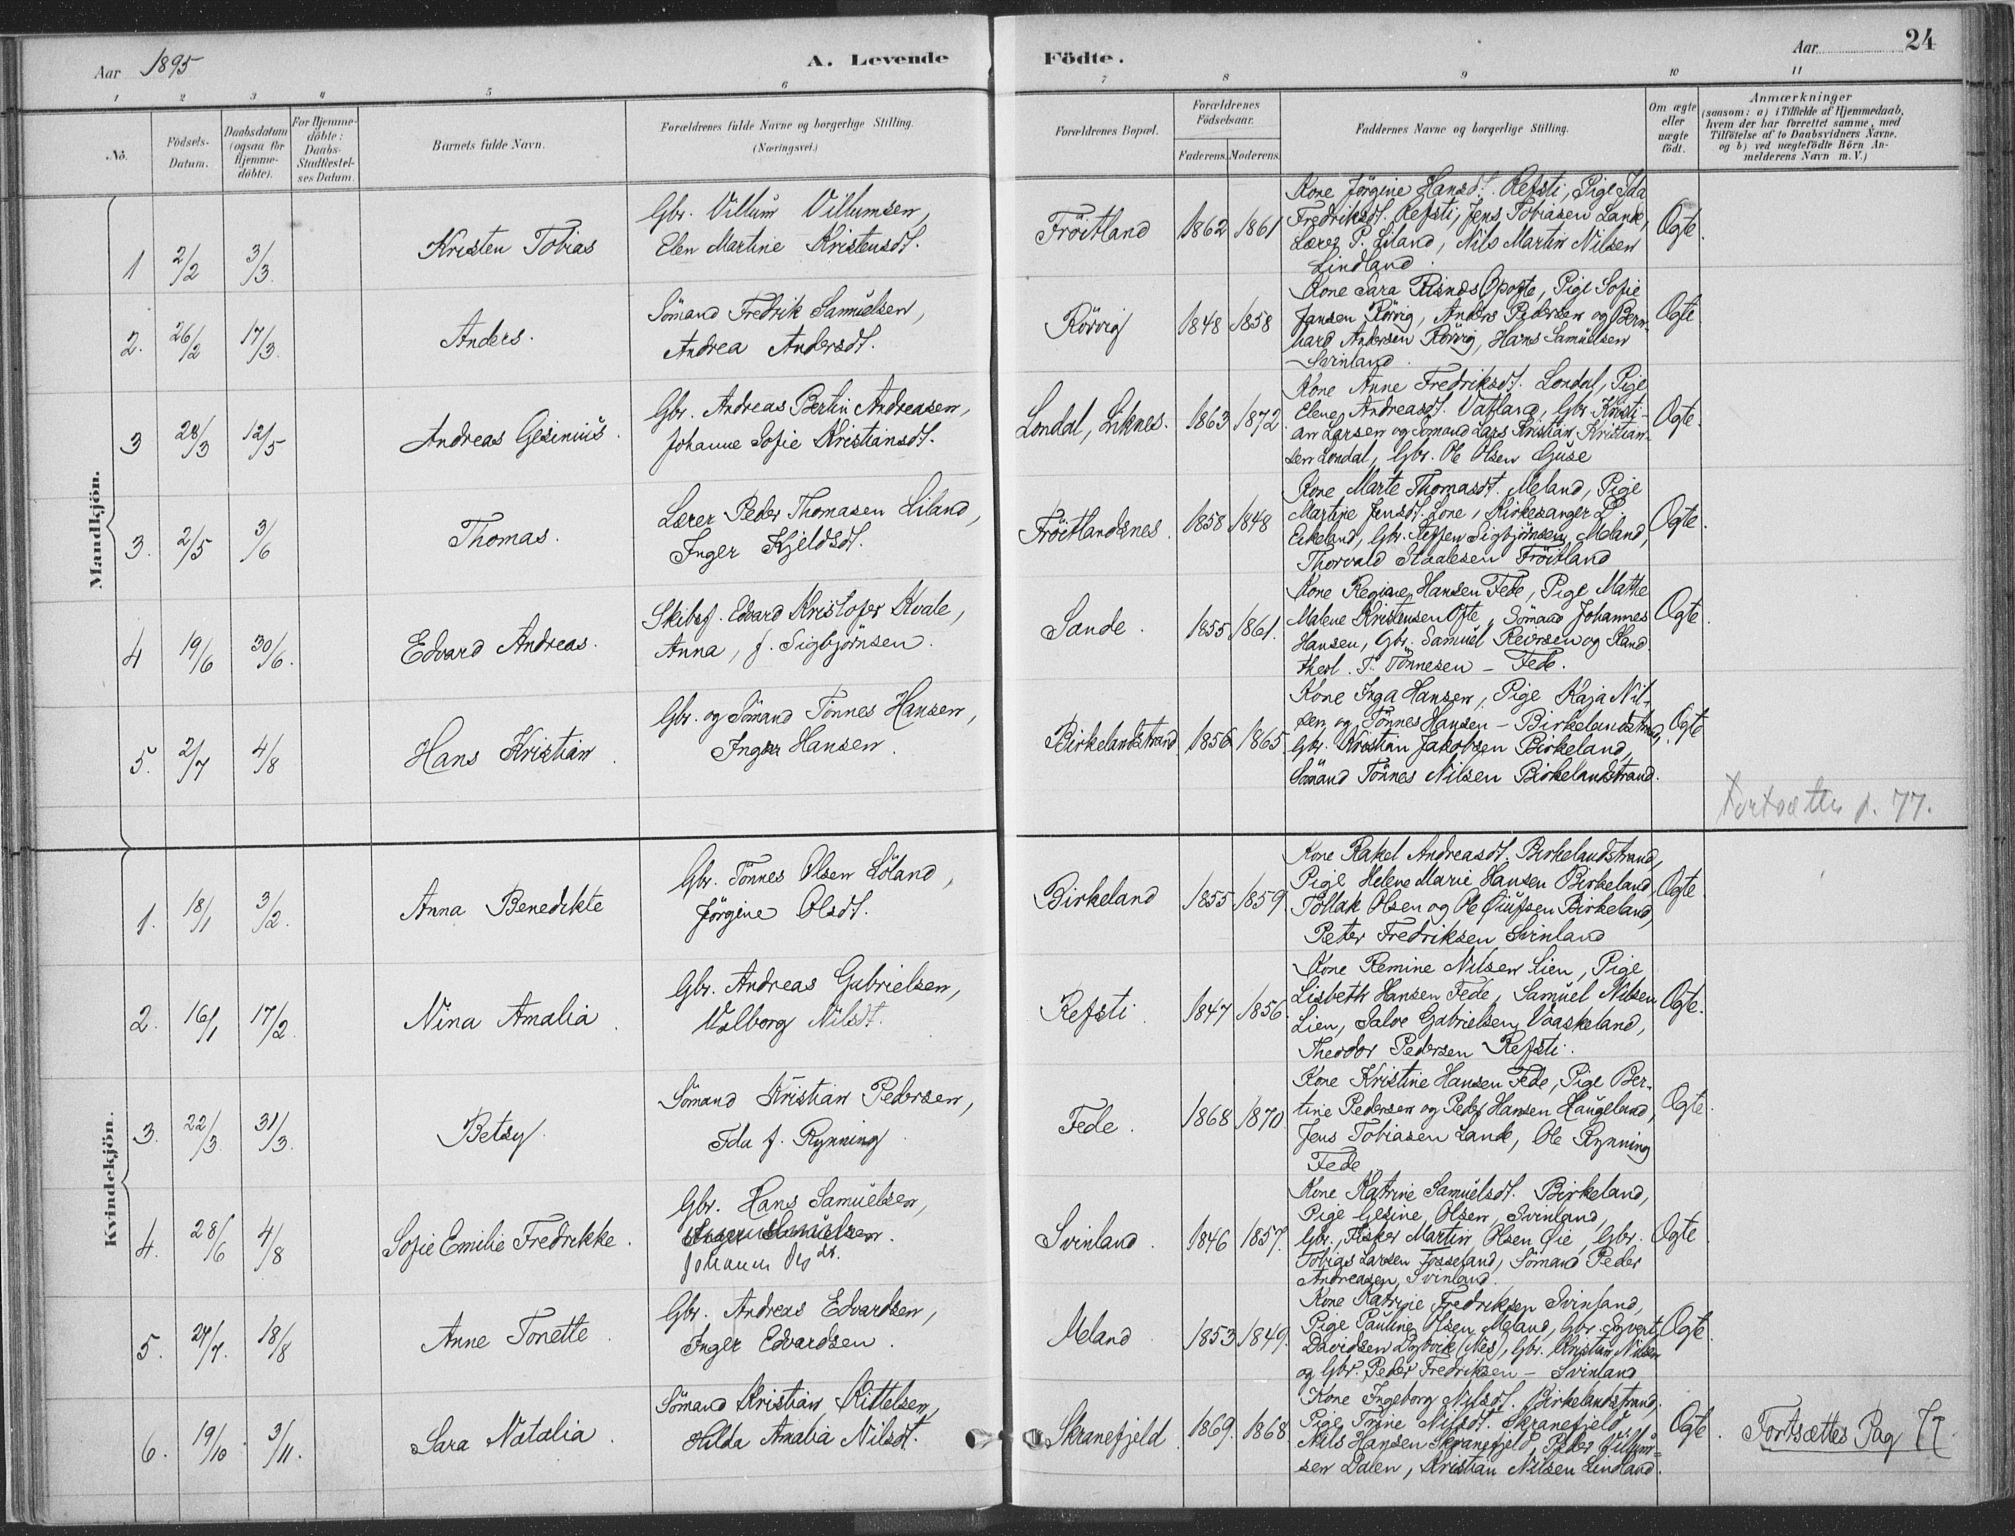 Aar 1895
A. Levende
Födte.
Aar
24
1 2 3 4 5 6 7 8 9 10 11
No.
Födsels-
Datum.
Daabsdatum
(ogsaa for
Hjemme-
döbte).
For Hjemme-
döbte:
Daabs-
Stadfæstel-
ses Datum.
Barnets fulde Navn.
Forældrenes fulde Navne og borgerlige Stilling.
(Næringsvei.)
Forældrenes Bopæl.
Forældrenes
Födselsaar.
Faderens. Moderens.
Faddernes Navne og borgerlige Stilling.
Om ægte
eller
uægte
født.
Anmærkninger
(saasom: a) i Tilfælde af Hjemmedaab,
hvem der har forrettet samme, med
Tilföielse af to Daabsvidners Navne,
og b) ved uægtefödte Börn An-
melderens Navn m. V.)
Mandkjön.
1 2/2 3/3. Kristen Tobias
Gbr. Villum Villumsen,
Elen Martine Kristensdt.
Fröitland 1862 1861
Kone Jörgine Hansdt. Refsti, Pige Ida
Fredriksdt. Refsti, Jens Tobiasen Lande,
Lærer P. Liland, Nils Martin Nilsen
Lindland.
Ægte.
2. 26/2 17/3. Anders.
Sömand Fredrik Samuelsen,
Andrea Andersdt.
Rörvig 1848 1858
Kone Sara Risnæs Opofte, Pige Sofie
Jansen Rörvig, Anders Pedersen og Bern-
hard Andersen Rörvig, Hans Samuelsen
Svinland.
Ægte.
3 28/3 12/5 Andreas Gesinius.
Gbr. Andreas Bertin Andreasen,
Johanne Sofie Kristiansdt.
Londal, Liknes. 1863 1872.
Kone Anne Fredriksdt. Londal, Pige
Elene Andreasdt. Vatland, Gbr. Kristi-
an Larsen og Sömand Lars Kristian Kristian-
sen Londal, Gbr. Ole Olsen Guse
Ægte.
3. 2/5 3/6 Thomas.
Lærer Peder Thomasen Liland,
Inger Kjeldsdt.
Fröitlandsnes. 1858 1848
Kone Marte Thomasdt. Meland, Pige
Martine Jensdt. Lone, Kirkesanger L.
Eikeland, Gbr. Steffen Sigbjörnsen Meland,
Thorvald Staalesen Fröitland
Ægte.
4 19/6 30/6. Edvard Andreas.
Skibsf. Edvard Kristofer Kvale,
Anna, f. Sigbjörnsen.
Sande. 1855 1861.
Kone Regine Hansen Fede, Pige Mathe
Malene Kristensen Ofte, Sömand Johannes
Hansen, Gbr. Samuel Reiersen og Kand.
theol. T. Tönnesen – Fede.
Ægte.
5. 2/7 4/8 Hans Kristian.
Gbr. og Sömand Tönnes Hansen,
Inger Hansen.
Birkelandstrand 1856 1865
Kone Inga Hansen, Pige Kaja Nil-
sen og Tönnes Hansen – Birkelandstrand,
Gbr. Kristian Jakobsen Birkeland,
Sömand Tönnes Nilsen Birkelandstrand.
Ægte
Fortsættes p. 77.
Kvindekjön.
1. 18/1 3/2. Anna Benedikte
Gbr. Tönnes Olsen Löland,
Jörgine Olsdt.
Birkeland 1855 1859
Kone Rakel Andreasdt. Birkelandstrand,
Pige Helene Marie Hansen Birkeland,
Tollak Olsen og Ole Öiufsen Birkeland,
Peter Fredriksen Svinland
Ægte.
2. 16/1 17/2. Nina Amalia.
Gbr. Andreas Gabrielsen,
Valborg Nilsdt.
Refsti. 1847 1856.
Kone Remine Nilsen Lien, Pige
Lisbeth Hansen Fede, Samuel Nilsen
Lien, Salve Gabrielsen Vaaskeland,
Theodor Pedersen Refsti.
Ægte.
3. 22/3. 31/3. Betsy.
Sömand Kristian Pedersen,
Ida f. Rynning.
Fede. 1868 1870
Kone Kristine Hansen Fede, Pige Ber-
tine Pedersen og Peder Hansen Haugeland,
Jens Tobiasen Lande, Ole Rynning
Fede
Ægte.
4. 28/6 4/8 Sofie Emilie Fredrikke.
Gbr. Hans Samuelsen,
Inger Samuelsen.
Svinland. 1846 1857.
Kone Katrine Samuelsdt. Birkeland,
Pige Gesine Olsen, Svinland,
Gbr., Fisker Martin Olsen Öie, Gbr.
Tobias Larsen Fosseland, Sömand Peder
Andreasen, Svinland.
Ægte
5. 27/7. 18/8 Anne Tonette.
Gbr. Andreas Edvardsen,
Inger Edvardsen.
Meland 1853 1849.
Kone Katrine Fredriksen Svinland,
Pige Pauline Olsen Meland, Gbr. Syvert
Davidsen Dagvik (Nes), Gbr. Kristian Nilsen
og Gbr. Peder Fredriksen – Svinland
Ægte.
6. 19/10. 3/11. Sara Natalia.
Sömand Kristian Kittelsen,
Hilda Amalia Nilsdt.
Skranefjeld. 1869. 1868
Kone Ingeborg Nilsdt. Birkelandstrand,
Pige Trine Nilsdt. Skranefjeld,
Nils Hansen Skranefjeld, Peder Villum-
sen Dalen, Kristian Nilsen Lindland.
Ægte.
Fortsættes Pag 77